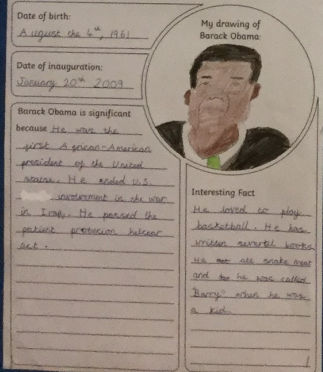 Date of birth:
August the 6th, 1961
Date of inauguration:
January 20th 2009
My drawing of
Barack Obama:
Barack Obama is significant
because He was the
first African-American
president of the United
states. He ended U.S.
involvement in the war
in Iraq. He passed the
patient
act.
Interesting Fact
He loved to play
basketball. He has
written several books
He ate snake meat
and he was called
"Barry" when he was
a kid.